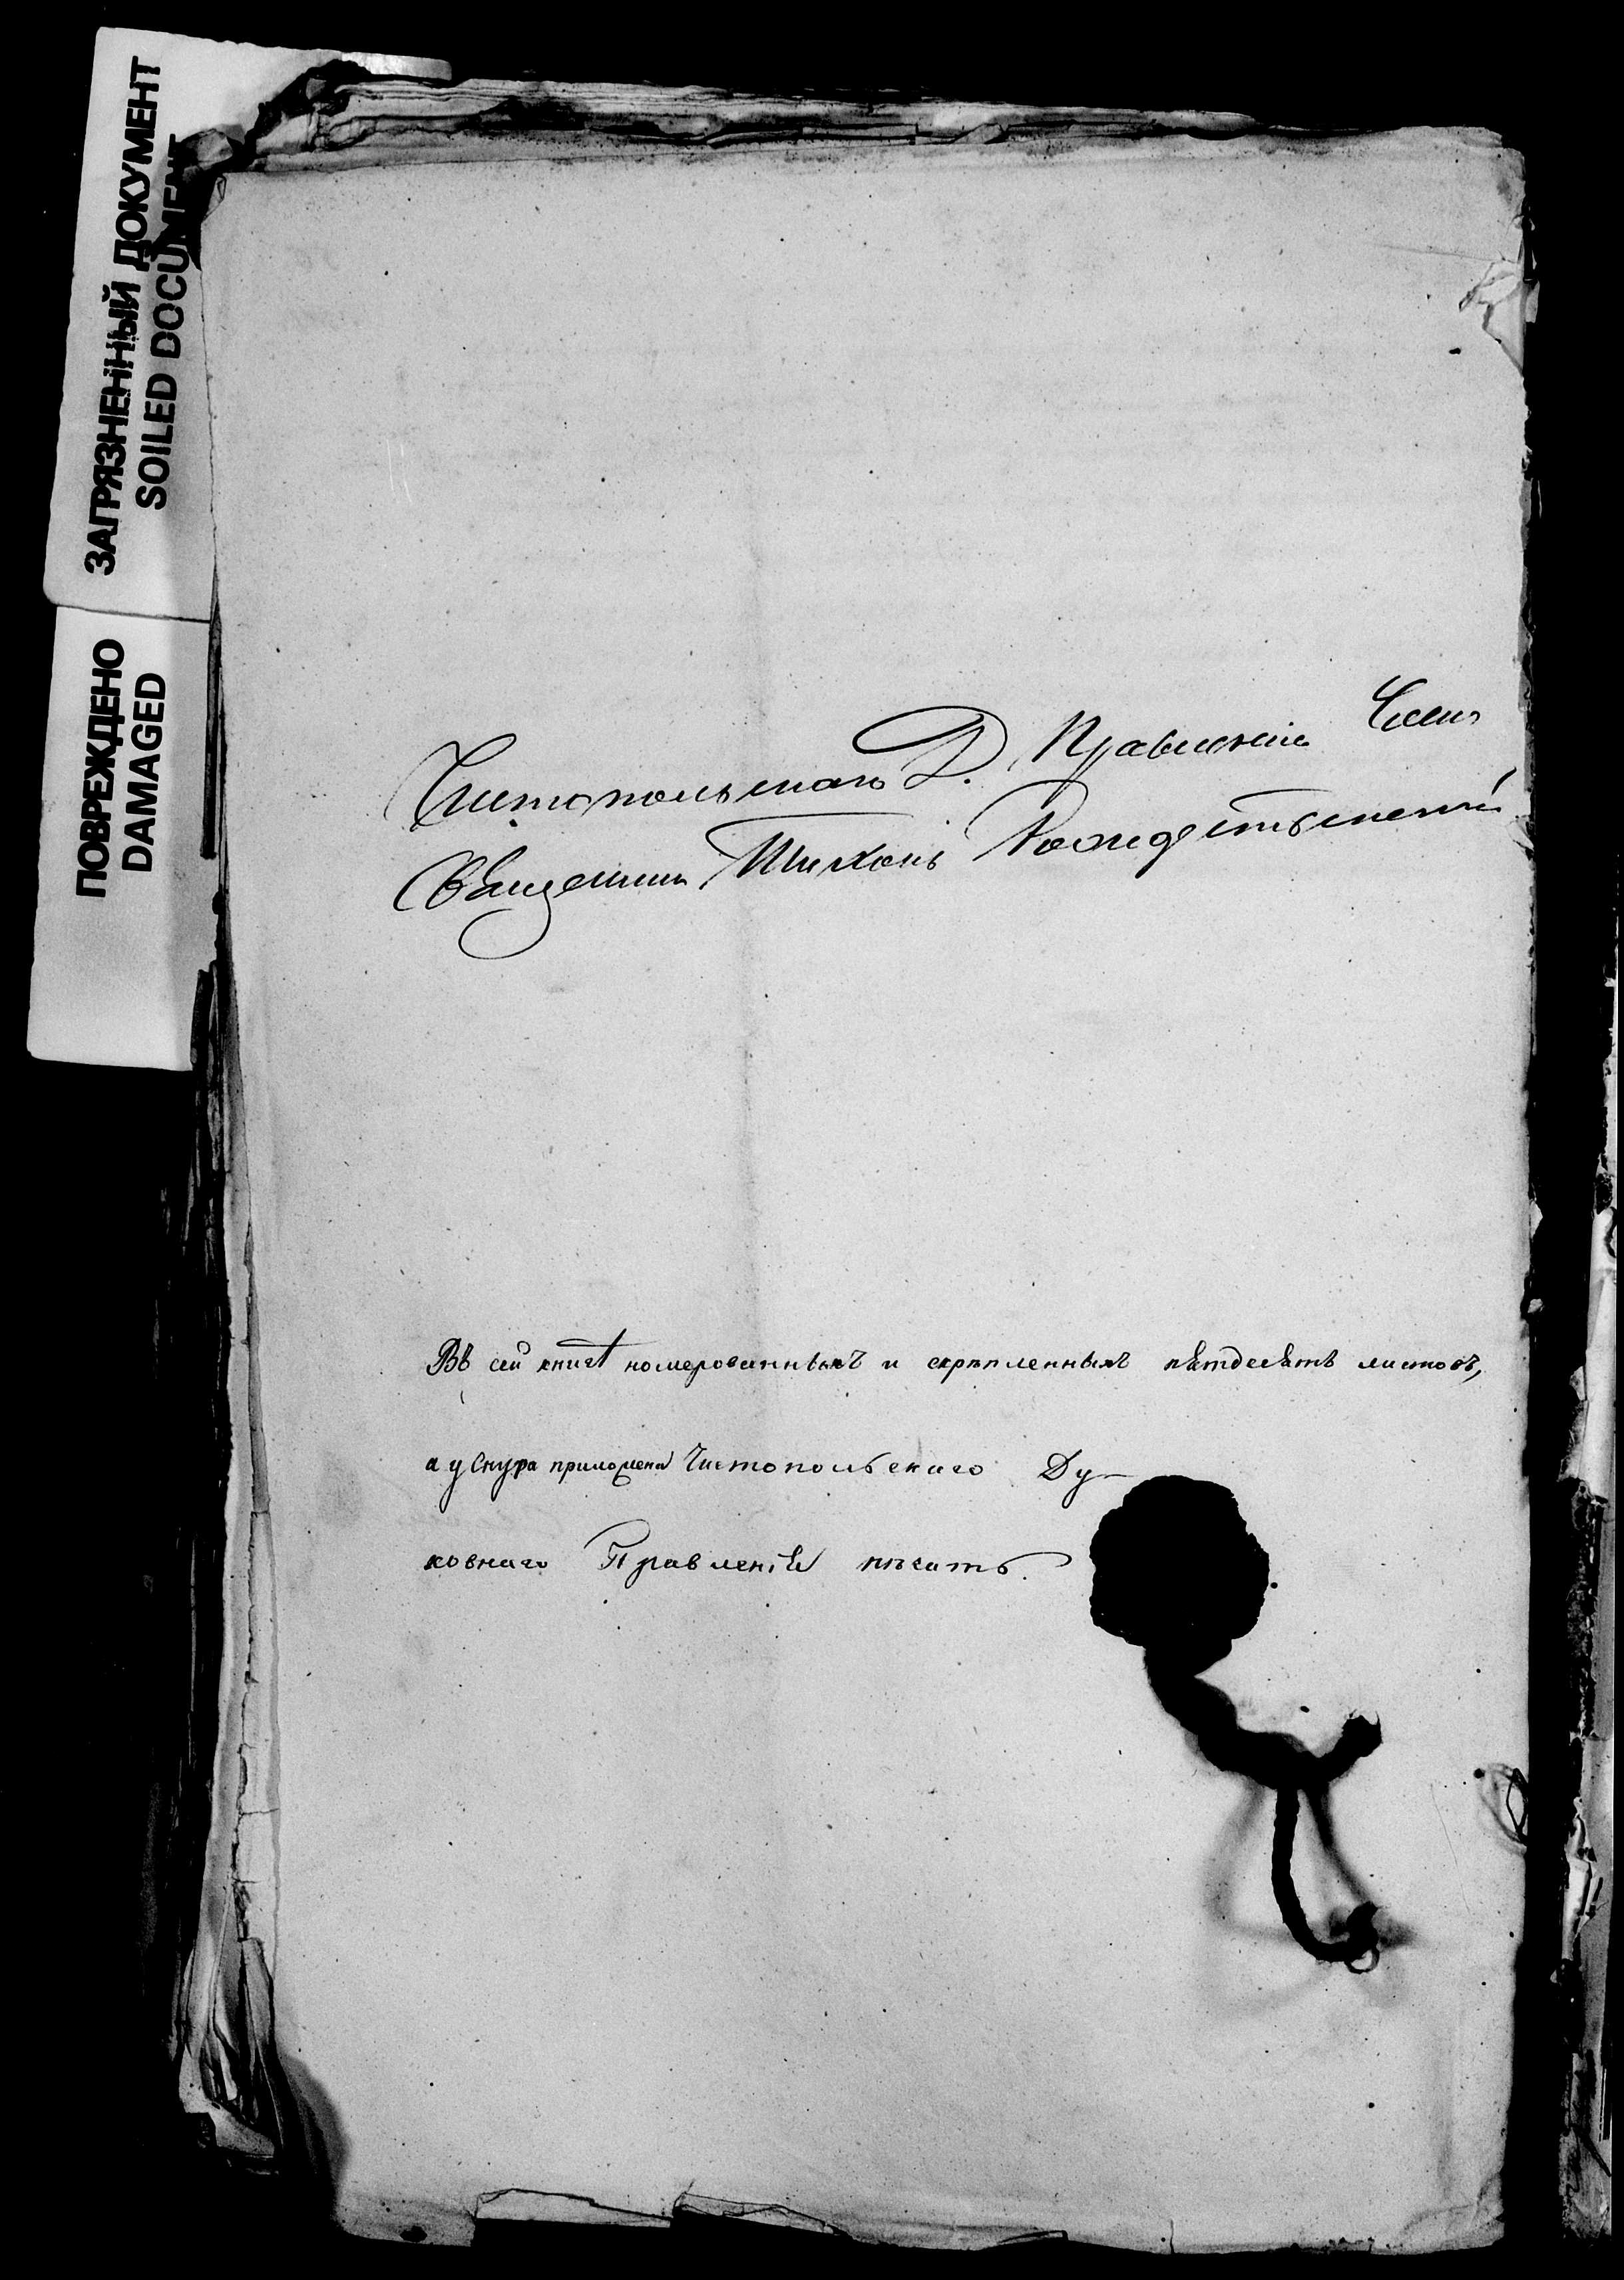 ЗАГРЯЗНЕННЫЙ ДОКУМЕНТ
SOILED DOCUMENT
ПОВРЕЖДЕНО
DAMAGED
Чистопольскаго Д. Правленія Член
Священникъ Тихонъ Рождественскій
Въ сей книгѣ номерованныхъ и скрѣпленныхъ пятдесятъ листовъ,
а у снура приложена Чистопольскаго Ду-
ховнаго Правленія печать.